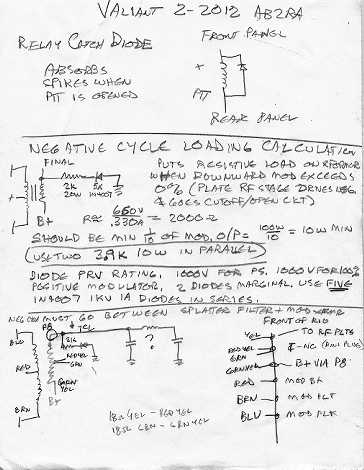 VALIANT 2-2012 AB2RA
RELAY CATCH DIODE
FRONT PANEL
ABSORBS
SPIKES WHEN
PTT IS OPENED
+
PTT
REAR PANEL
NEGATIVE CYCLE LOADING CALCULATION
FINAL
PUTS RESISTIVE LOAD ON
WHEN DOWNWARD MOD EXCEEDS
0% (PLATE RF STAGE DRIVES NEG
& GOES CUTOFF/OPEN CKT)
2K
20W
5A
1N4007
B+
R≈ 660V / .330A = 2000Ω
SHOULD BE MIN 1/10 OF MOD, O/P= 100W/10 = 10W MIN
(USE TWO 3.9K 10W IN PARALLEL)
DIODE PRV RATING, 1000V FOR PS, 1000V FOR 100%
POSITIVE MODULATOR, 2 DIODES MARGINAL, USE FIVE
1N4007 1KV 1A DIODES IN SERIES.
MUST GO BETWEEN SPLATTER FILTER + MOD
FRONT OF RIG
BLU
RED
BRN
YEL
P8
2K
RED YEL
GRN YEL
B+
?
YEL
RED YEL
GRN YEL
RED
BRN
BLU
TO RF PLTS
B+ VIA P8
MOD B+
MOD PLT
MOD PLT